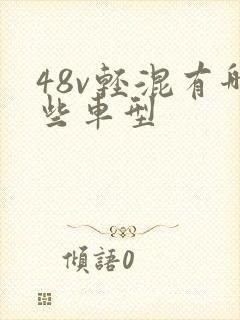 48v輕混有哪
些車型
傾語0